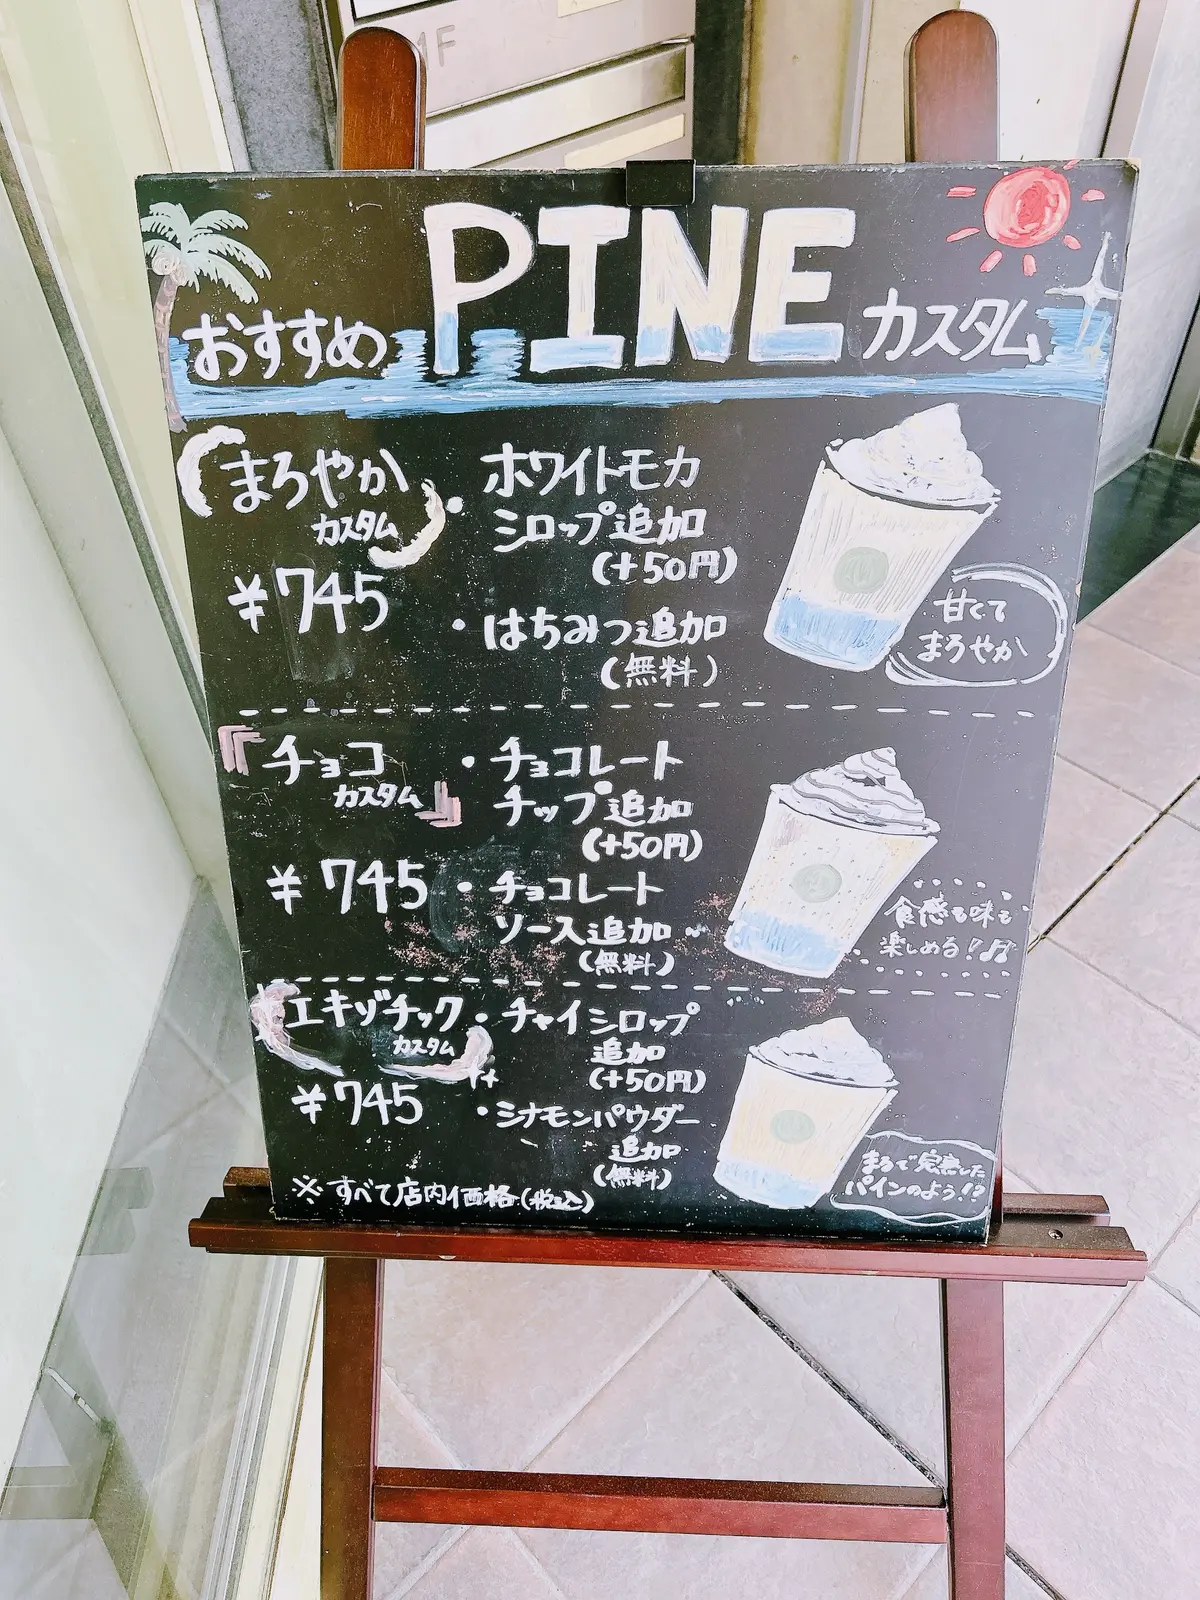 1F
おすすめ PINE カスタム
まろやか
カスタム
¥745
・ホワイトモカ
シロップ追加
(+50円)
・はちみつ追加
(無料)
甘くて
まろやか
チョコ
カスタム
¥745
・チョコレート
チップ追加
(+50円)
・チョコレート
ソース追加
(無料)
食感も味も
楽しめる!♬
エキゾチック
カスタム
¥745
・チャイシロップ
追加
(+50円)
・シナモンパウダー
追加
(無料)
まるで完熟した
パインのよう!?
※すべて店内価格(税込)